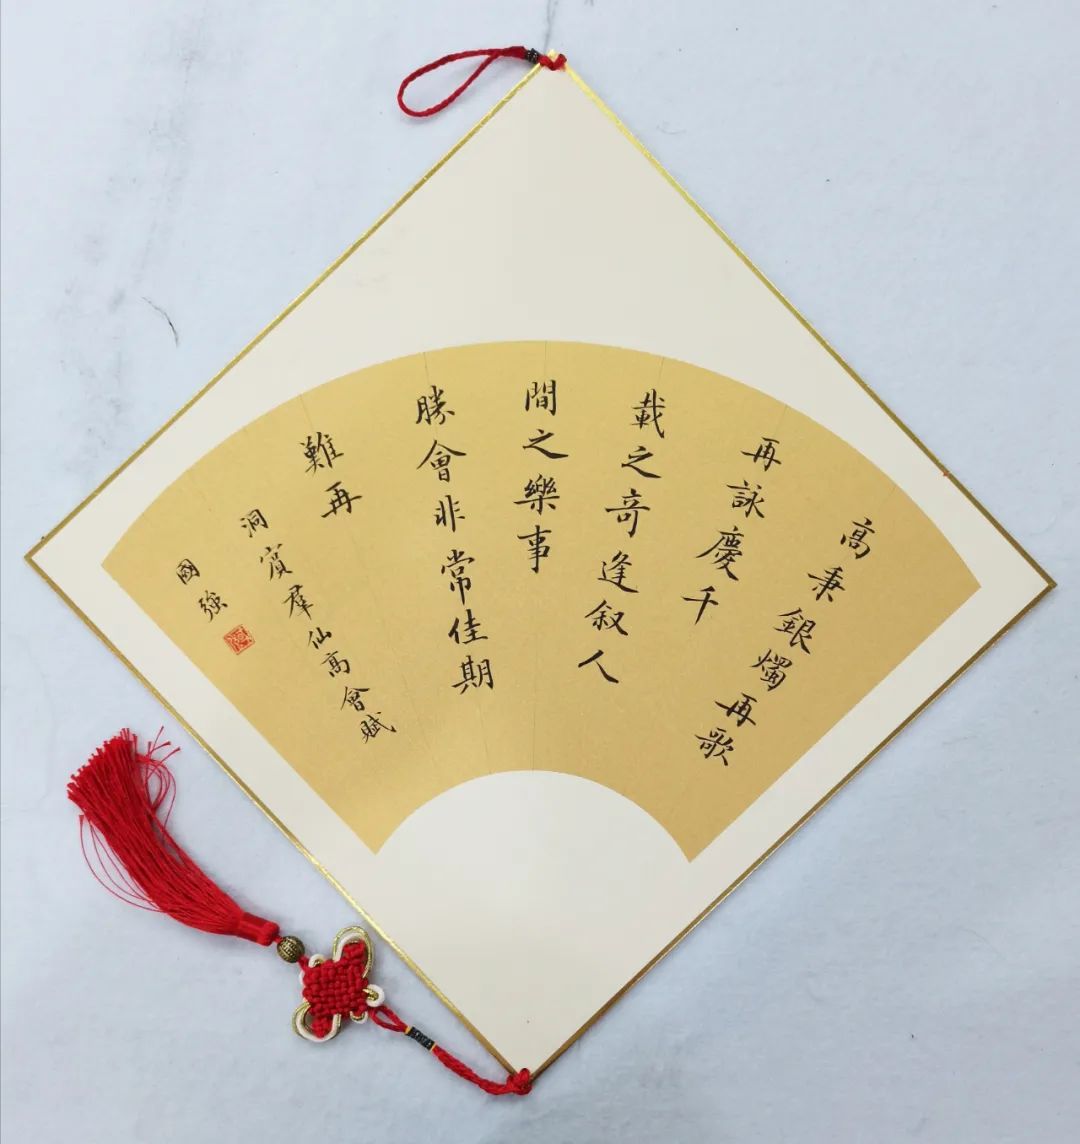 高秉銀燭再歌
再詠慶千
載之奇逢叙人
間之樂事
勝會非常佳期
難再
洞賓羣仙高會賦
國強